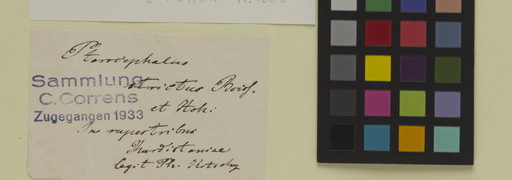 Pterocephalus
strictus Boiss.
et Hoh:
Sammlung
C. Correns
Zugegangen 1933
In rupestribus
Kurdistaniae
legit Th. Kotschy